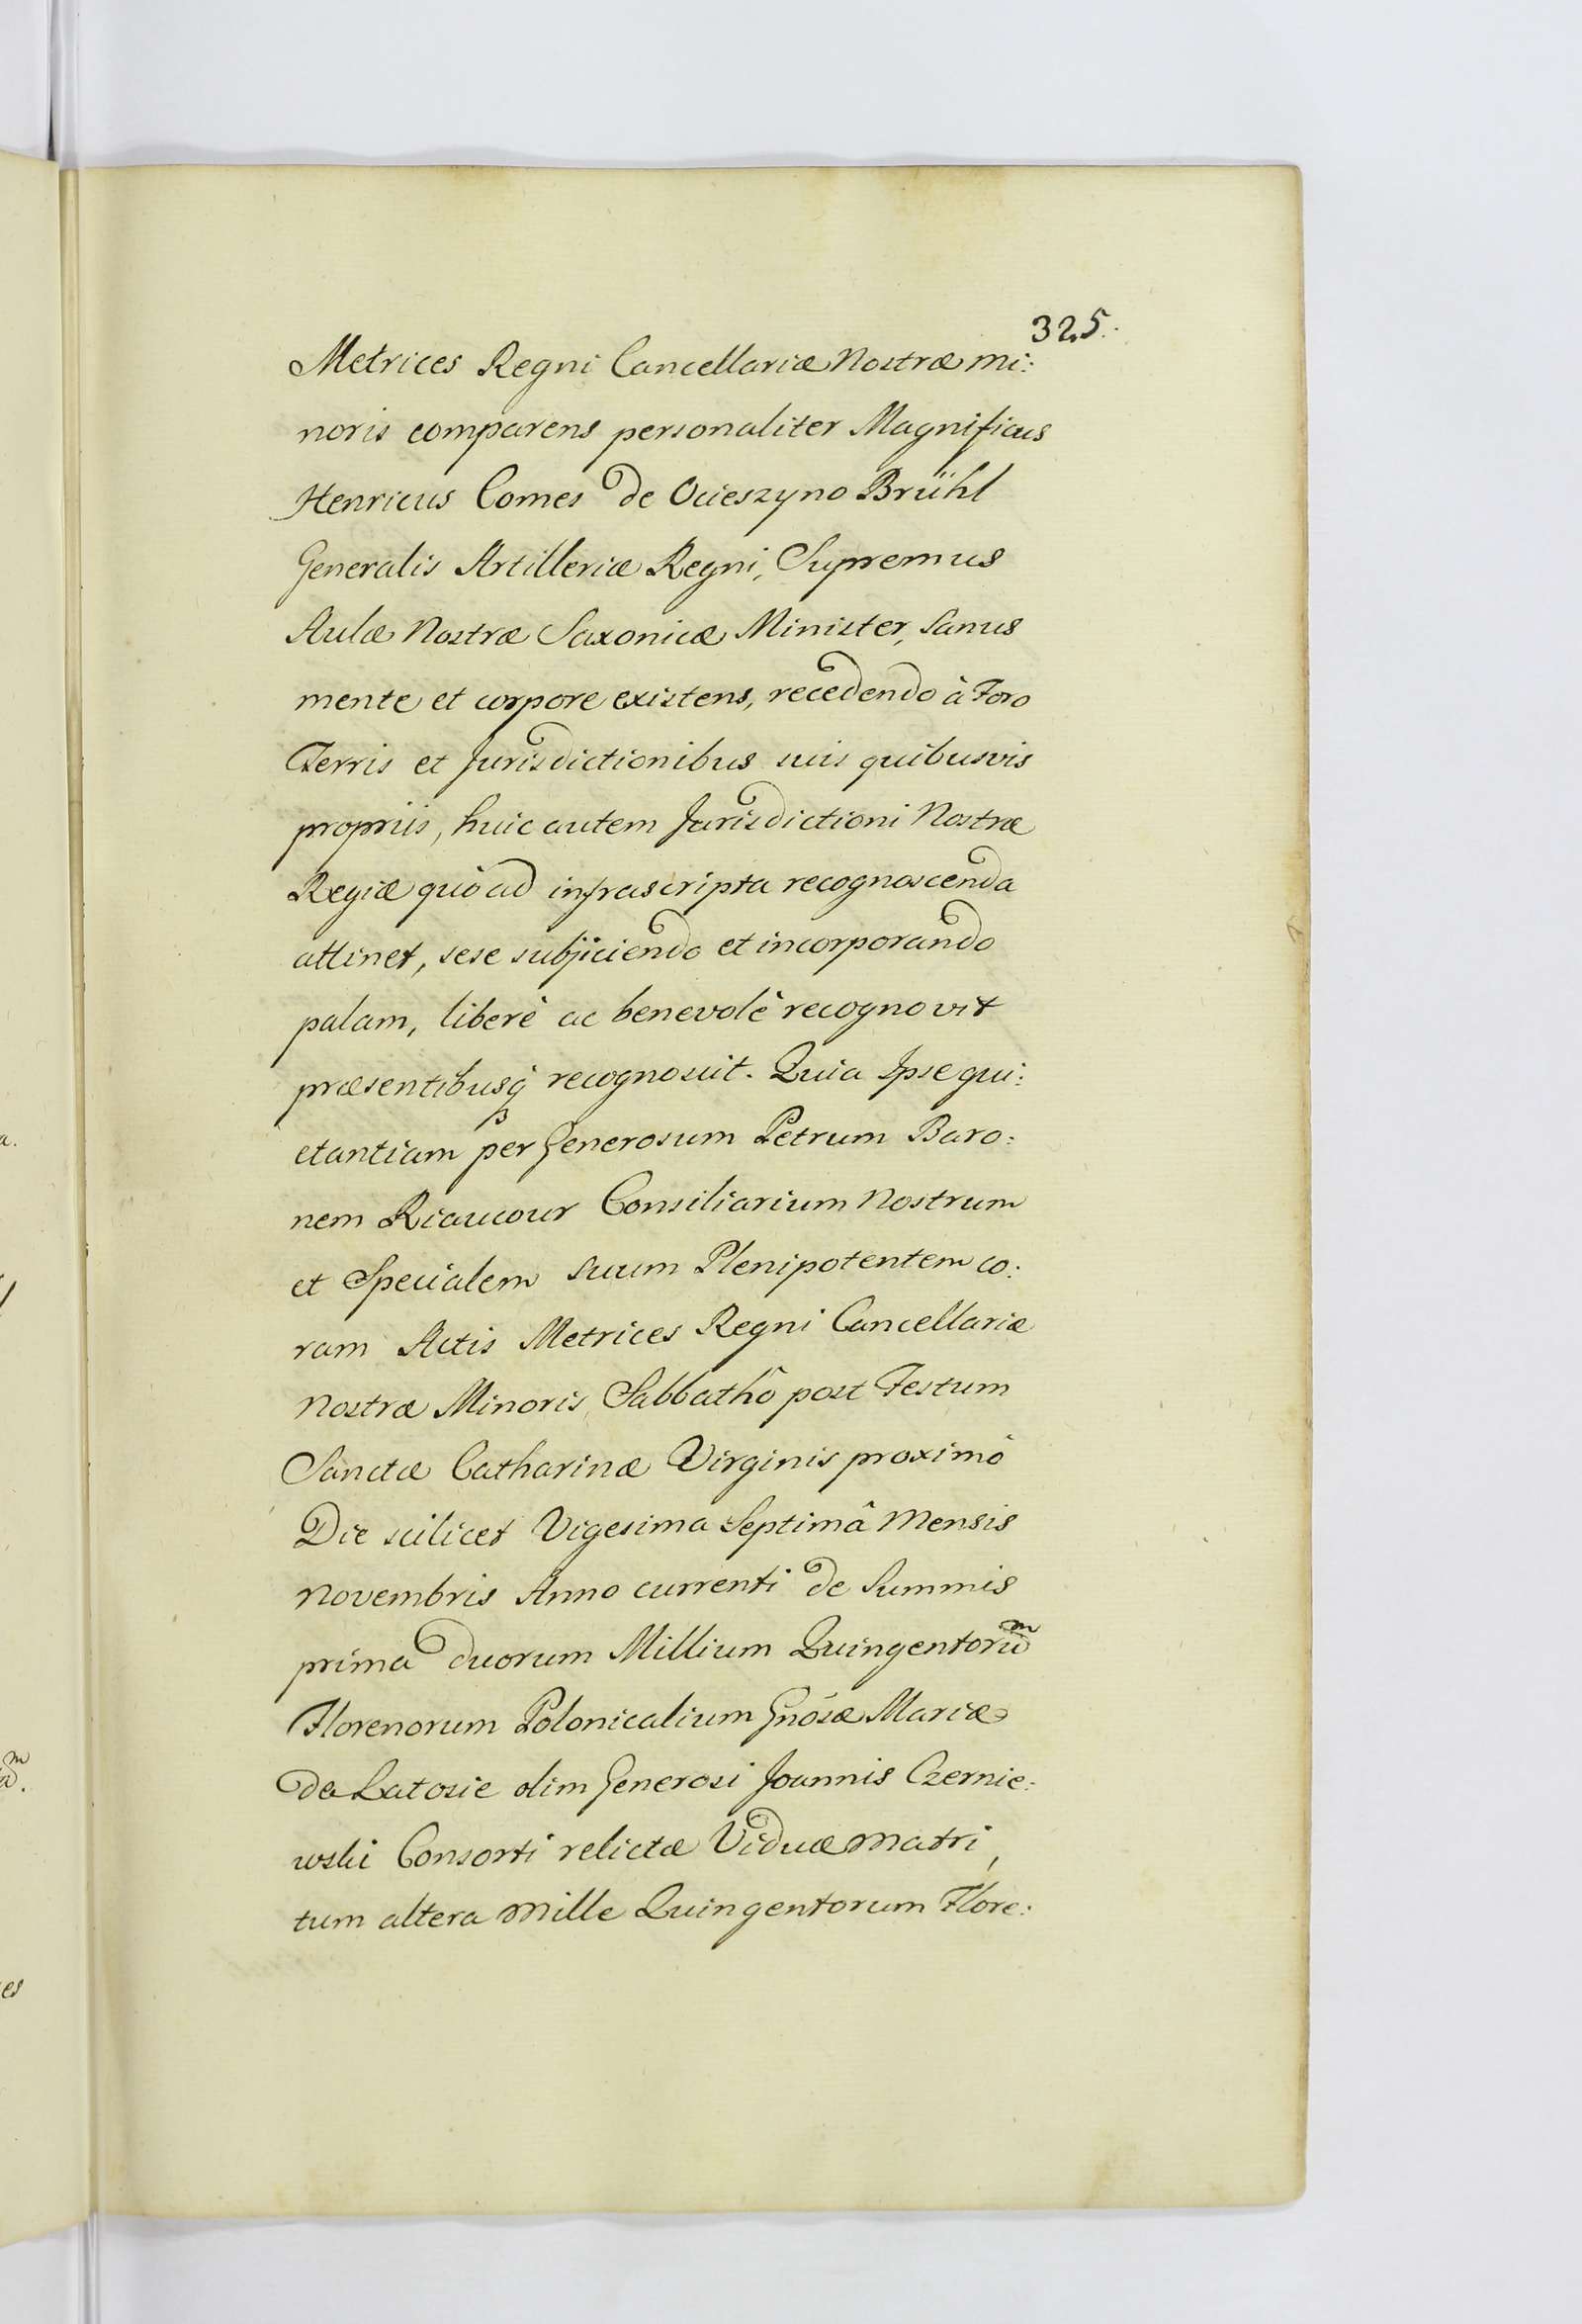 325.
Metrices Regni Cancellariæ Nostræ mi:
noris comparens personaliter Magnificus
Henricus Comes de Ocieszyno Brühl
Generalis Artilleriæ Regni, Supremus
Aulæ Nostræ Saxonicæ Minister, sanus
mente et corpore existens, recedendo à Foro
Terris et Jurisdictionibus suis quibusvis
propriis, huic autem Jurisdictioni Nostræ
Regiæ quò ad infrascripta recognoscenda
attinet, sese subjiciendo et incorporando
palam, liberè ac benevolè recognovit
præsentibusq́ recognoscit. Quia Ipse qui:
etantiam per Generosum Petrum Baro:
nem Riaucour Consiliarium Nostrum
et Specialem suum Plenipotentem co:
ram Actis Metrices Regni Cancellariæ
Nostræ Minoris, Sabbathô post Festum
Sanctæ Catharinæ Virginis proximô
Die scilicet Vigesima Septimâ Mensis
Novembris Anno currenti de Summis
prima duorum Millium Quingentorũm
Florenorum Polonicalium Gnósæ Mariæ
de Latosie olim Generosi Joannis Czernie:
wski Consorti relictæ Viduæ Matri,
tum altera Mille Quingentorum Flore:
a.
m
a.
es